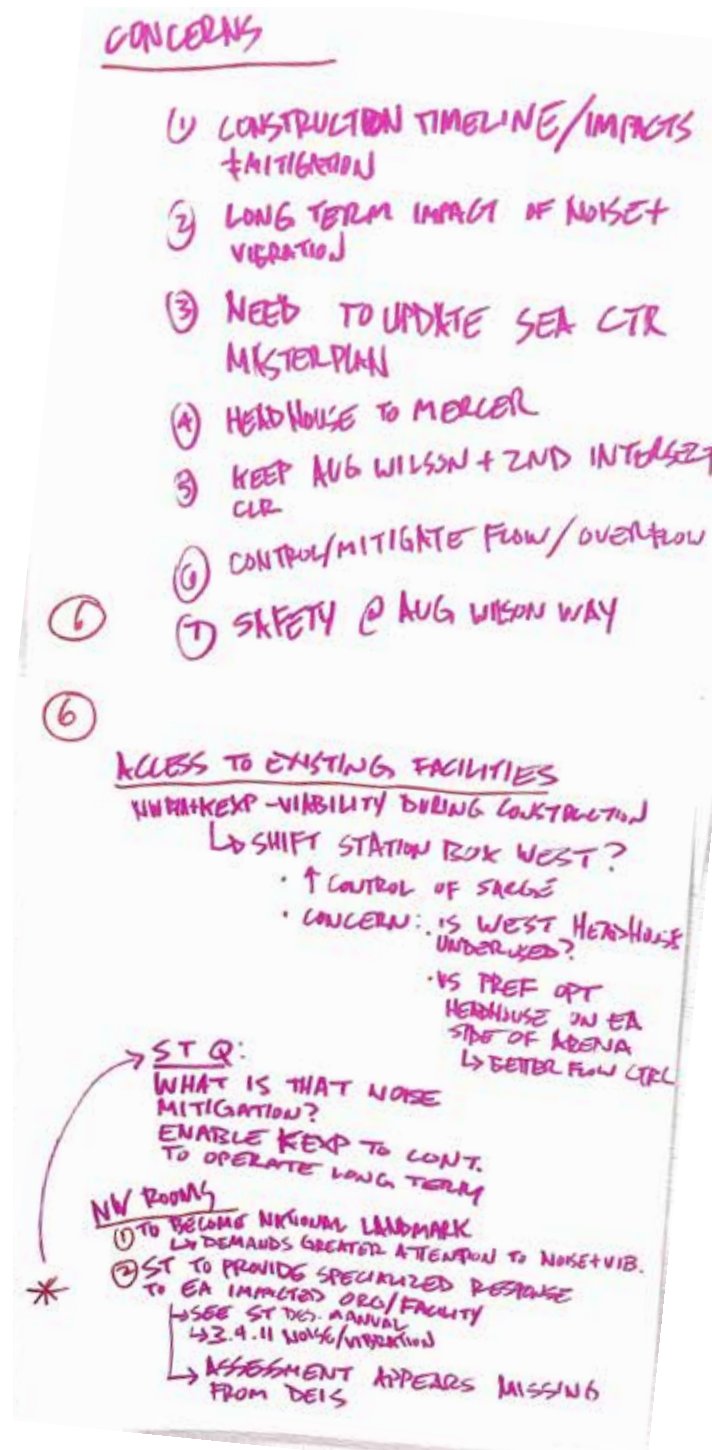 CONCERNS
① CONSTRUCTION TIMELINE/IMPACTS
+MITIGATION
② LONG TERM IMPACT OF NOISE+
VIBRATION
③ NEED TO UPDATE SEA CTR
MASTERPLAN
④ HEADHOUSE TO MERCER
⑤ KEEP AUG WILSON + 2ND INTERSECT
CLR
⑥ CONTROL/MITIGATE FLOW/OVERFLOW
⑦ SAFETY @ AUG WILSON WAY
⑥
⑥
ACCESS TO EXISTING FACILITIES
+KEXP - VIABILITY DURING CONSTRUCTION
↳ SHIFT STATION BOX WEST?
• ↑ CONTROL OF
• CONCERN: • IS WEST HEADHOUSE
UNDERUSED?
• VS PREF OPT
HEADHOUSE ON EA
SIDE OF ARENA
↳ BETTER FLOW CTRL
ST Q:
WHAT IS THAT NOISE
MITIGATION?
ENABLE KEXP TO CONT.
TO OPERATE LONG TERM
NW ROOMS
① TO BECOME NATIONAL LANDMARK
↳ DEMANDS GREATER ATTENTION TO NOISE+VIB.
② ST TO PROVIDE SPECIALIZED RESPONSE
TO EA IMPACTED ORG/FACILITY
↳ SEE ST DES. MANUAL
↳ 3.4.11 NOISE/VIBRATION
↳ ASSESSMENT APPEARS MISSING
FROM DEIS